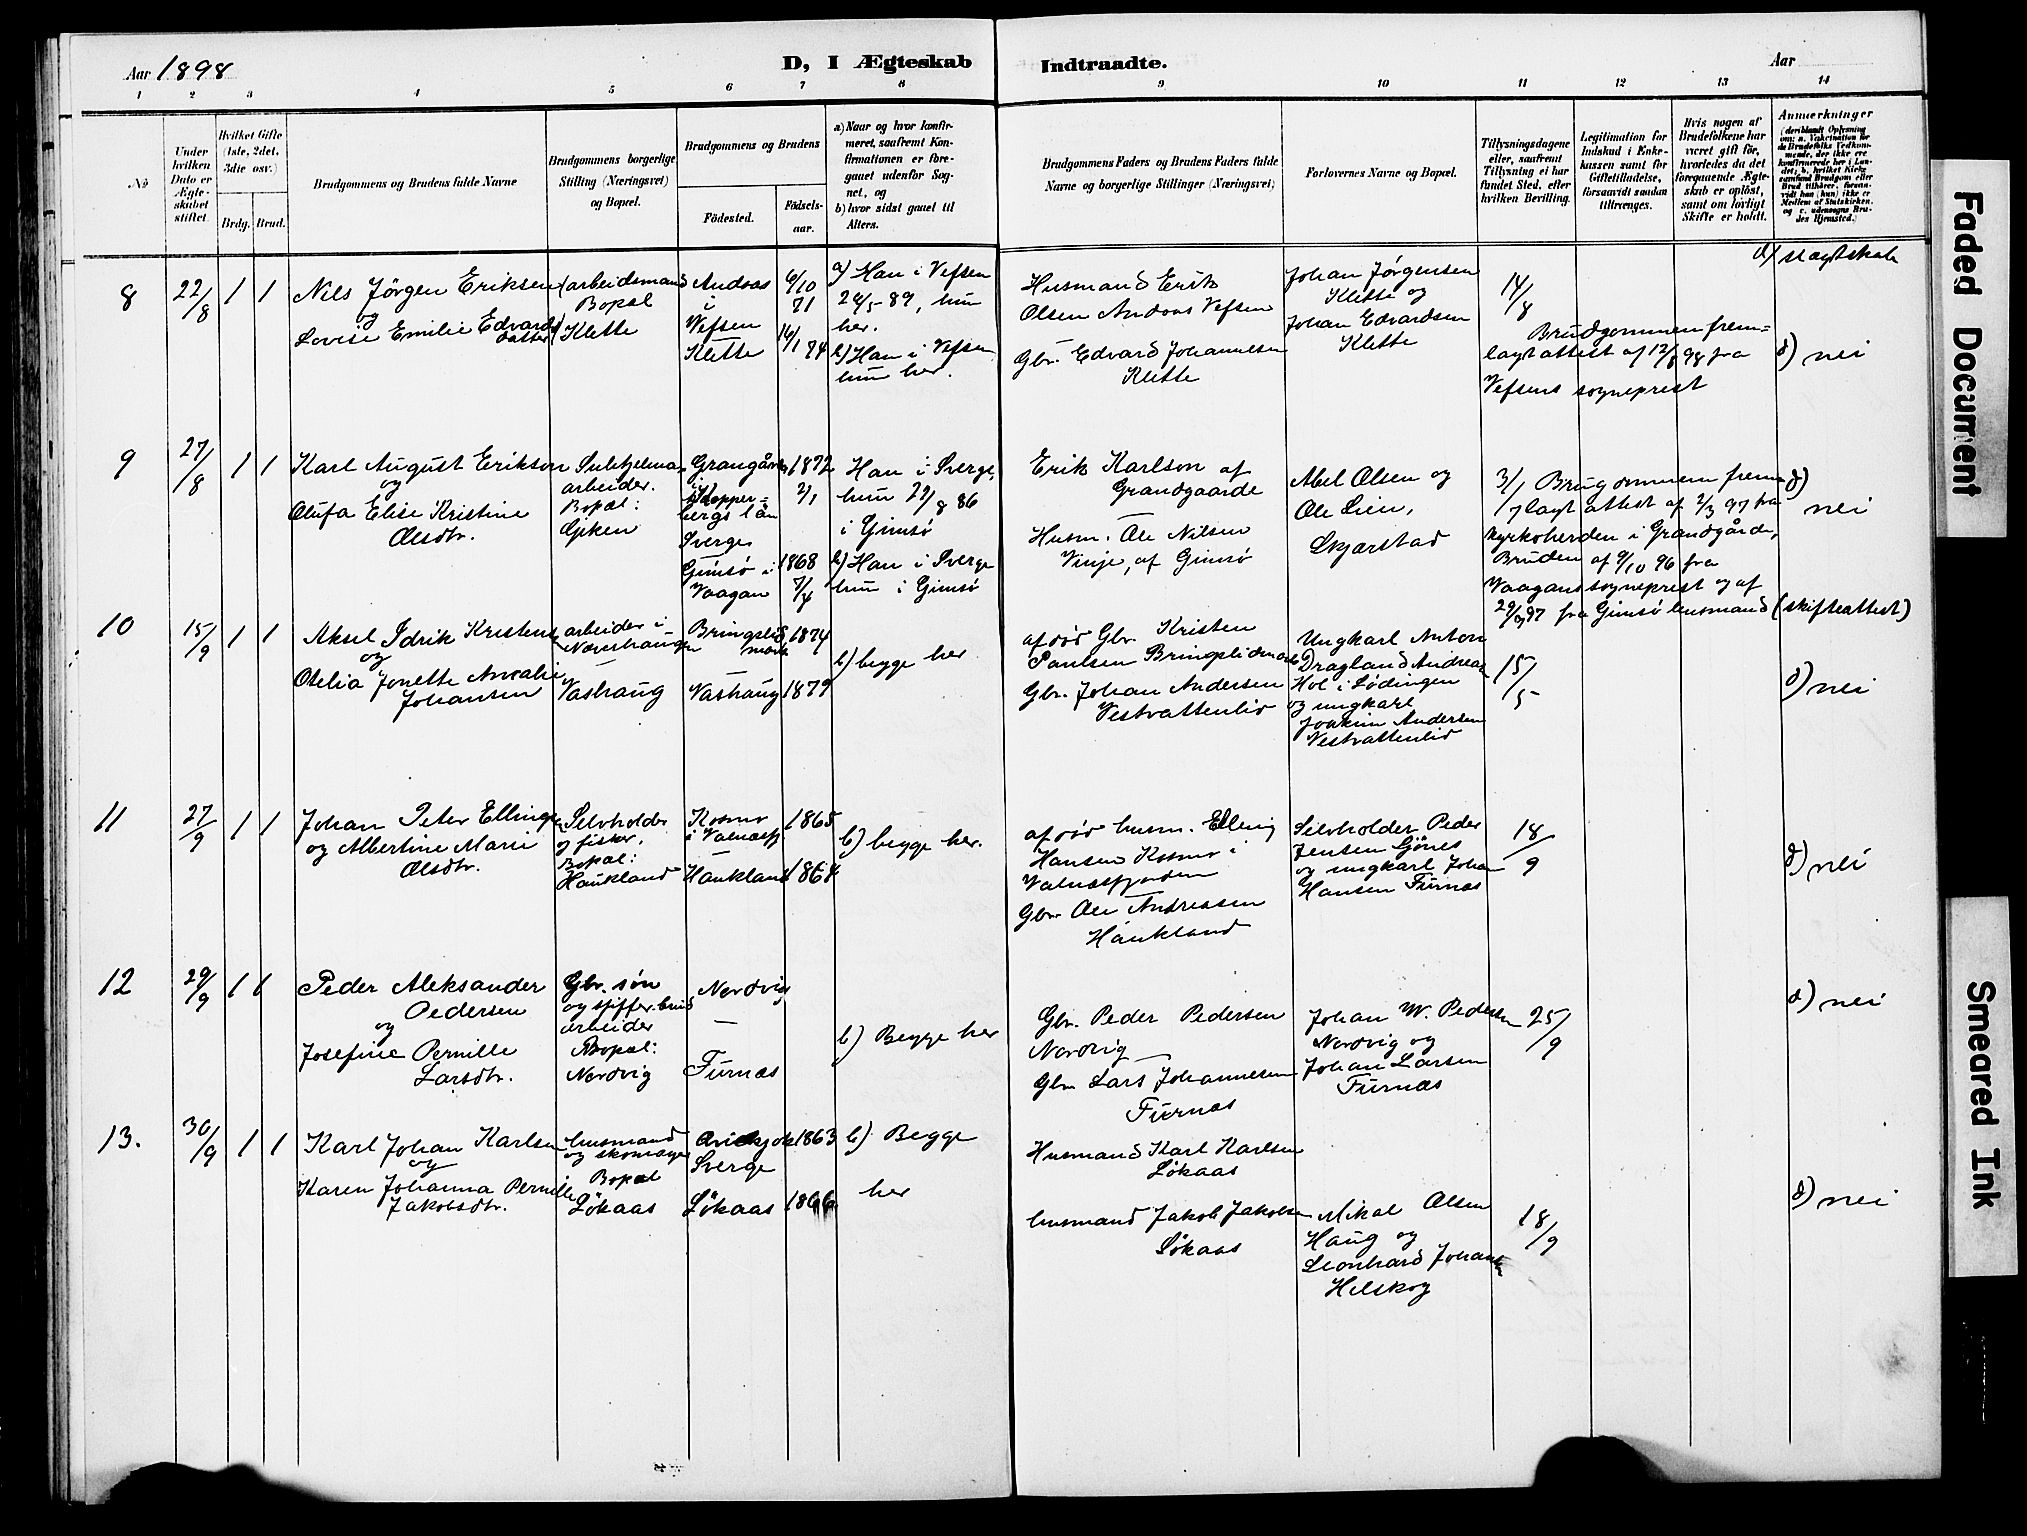 Aar 1898
D, I Ægteskab
Indtraadte.
Aar
1 2 3 4 5 6 7 8 9 10 11 12 13 14
No
Under hvilken Dato er Ægteskabet stiftet.
Hvilket Gifte (1ste, 2det, 3die osv.)
Brdg. Brud.
Brudgommens og Brudens fulde Navne
Brudgommens borgerlige Stilling (Næringsvei) og Bopæl.
Brudgommens og Brudens
Födested.
Födselsaar.
a) Naar og hvor konfirmeret, saafremt Konfirmationen er foregaaet udenfor Sognet, og
b) hvor sidst gaaet til Alters.
Brudgommens Faders og Brudens Faders fulde Navne og borgerlige Stillinger (Næringsvei)
Forlovernes Navne og Bopæl.
Tillysningsdagene eller, saafremt Tillysning ei har fundet Sted, efter hvilken Bevilling.
Legitimation for Indskud i Enkekassen samt for Giftetilladelse, forsaavidt saadan tiltrænges.
Hvis nogen af Brudefolkene har været gift för, hvorledes da det foregaaende Ægteskab er oplöst, samt om lovligt Skifte er holdt.
Anmærkninger
(deriblandt Oplysning om: a. Vakcination for de Brudefolks Vedkommende, der ikke ere konfirmerede her i Landet; b. hvilket Kirkesamfund Brudgom eller Brud tilhører, forsaavidt han (hun) ikke er Medlem af Statskirken, og c. udensogns Brudes Hjemsted.)
d) slægtskab
8
22/8
1 1
Nils Jørgen Eriksen
og
Lovise Emilie Edvards
datter
arbeidsmand
Bopæl
Klette
Andaas
i
Vefsen
Klette
6/10
71
16/1 74
a) Han i Vefsen
24/5 89, hun
her.
b) Han i Vefsen
hun her.
Husmand Erik
Olsen Andaas Vefsen
Gbr. Edvard Johannesen
Klette
Johan Jørgensen
Klette og
Johan Edvardsen
Klette
14/8
Brudgommen frem=
lagt attest af 12/8 98 fra
Vefsens sogneprest
d) nei
9
27/8
1 1
Karl August Erikson
og
Olufa Elise Kristine
Olsdtr.
Sulitjelma
arbeider.
Bopæl:
Gjken
Grangårde
i
Kopper=
bergs län
Sverge
Gimsø i
Vaagan
1872
2/1
1868
7/4
Han i Sverge,
hun 29/8 86
i Gimsø
b) Han i Sverge
hun i Gimsø
Erik Karlson af
Grandgaarde
Husm. Ole Nilsen
Vinje, af Gimsø
Abel Olsen og
Ole Lien,
Skjærstad
3/7
Brugommen frem
lagt attest af 2/3 97 fra
Kyrkoherden i Grandgårde,
Bruden af 9/10 96 fra
Vaagans sogneprest og af
29/8 97 fra Gimsø lensmand (skifteattest)
d)
nei
10
15/9
1 1
Aksel Idrik Kristensen
og
Otelia Jonette Amalie
Johansen
arbeider i
Næverhaugen
Vashaug
Bringslid
mark
Vashaug
1874
1879
b) begge her
afdød Gbr. Kristen
Paulsen Bringslidmark
Gbr. Johan Andersen
Vestvattenlid
Ungkarl Anton
Dragland Andreas
Hol i Lødingen
og ungkarl
Joakim Andersen
Vestvattenlid
15/5
d) nei
11
27/9
1 1
Johan Peter Ellingsen
og Albertine Marie
Olsdtr.
Selvholder
og fisker.
Bopæl:
Haukland
Kosmo
i Valnæsfj
Haukland
1865
1864
b) begge her.
afdød husm. Elling
Hansen Kosmo i
Valnæsfjorden
Gbr. Ole Andreasen
Haukland
Selvholder Peder
Jensen Gjønes
og ungkarl Johan
Hansen Furnæs
18/9
d) nei
12
29/9
1 1
Peder Aleksander
Pedersen
og
Josefine Pernille
Larsdtr.
Gbr. søn
og skiffer.brud
arbeider
Bopæl:
Nordvig
Nordvig
Furnæs
b) Begge her
Gbr. Peder Pedersen
Nordvig
Gbr. Lars Johannesen
Furnæs
Johan M. Pedersen
Nordvig og
Johan Larsen
Furnæs
25/9
d) nei
13.
30/9
1 1
Karl Johan Karlsen
og
Karen Johanna Pernille
Jakobsdtr.
husmand
og skomager
Bopæl
Løkaas
Sverge
Løkaas
1863
1866
b) Begge
her
Husmand Karl Karlsen
Løkaas
husmand Jakob Jakobsen
Løkaas
Mikal Olsen
Haug og
Leonhard Johans
Helskog
18/9
d) nei
Faded Document
Smeared Ink